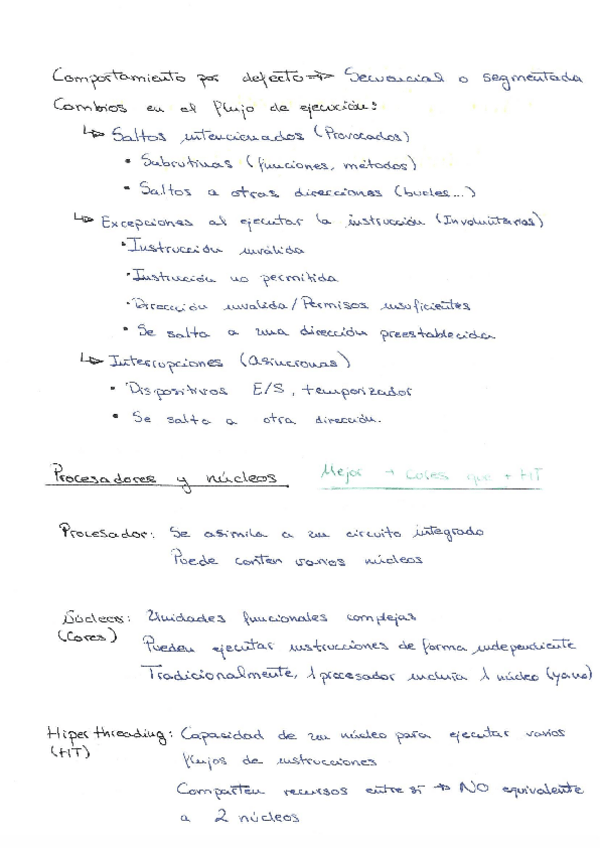 Comportamiento por defecto → Secuencial o segmentada
Cambios en el flujo de ejecución:
↳ Saltos intencionados (Provocados)
• Subrutinas (funciones, métodos)
• Saltos a otras direcciones (bucles...)
↳ Excepciones al ejecutar la instrucción (Involuntarias)
• Instrucción inválida
• Instrucción no permitida
• Dirección invalida/Permisos insuficientes
• Se salta a una dirección preestablecida
↳ Interrupciones (asíncronas)
• Dispositivos E/S, temporizador
• Se salta a otra dirección.
Procesadores y núcleos Mejor + cores que + HT
Procesador: Se asimila a un circuito integrado
Puede conten varios núcleos
Núcleos: Unidades funcionales complejas
(Cores) Pueden ejecutar instrucciones de forma independiente
Tradicionalmente, 1 procesador incluía 1 núcleo (ya no)
Hiper threading: Capacidad de un núcleo para ejecutar varios
(HT) flujos de instrucciones
Comparten recursos entre sí → NO equivalente
a 2 núcleos